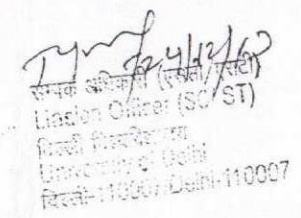 24/12/60
सम्पर्क अधिकारी (एससी/एसटी)
Liasion Officer (SC/ST)
दिल्ली विश्वविद्यालय
University of Delhi
दिल्ली-110007/Delhi-110007